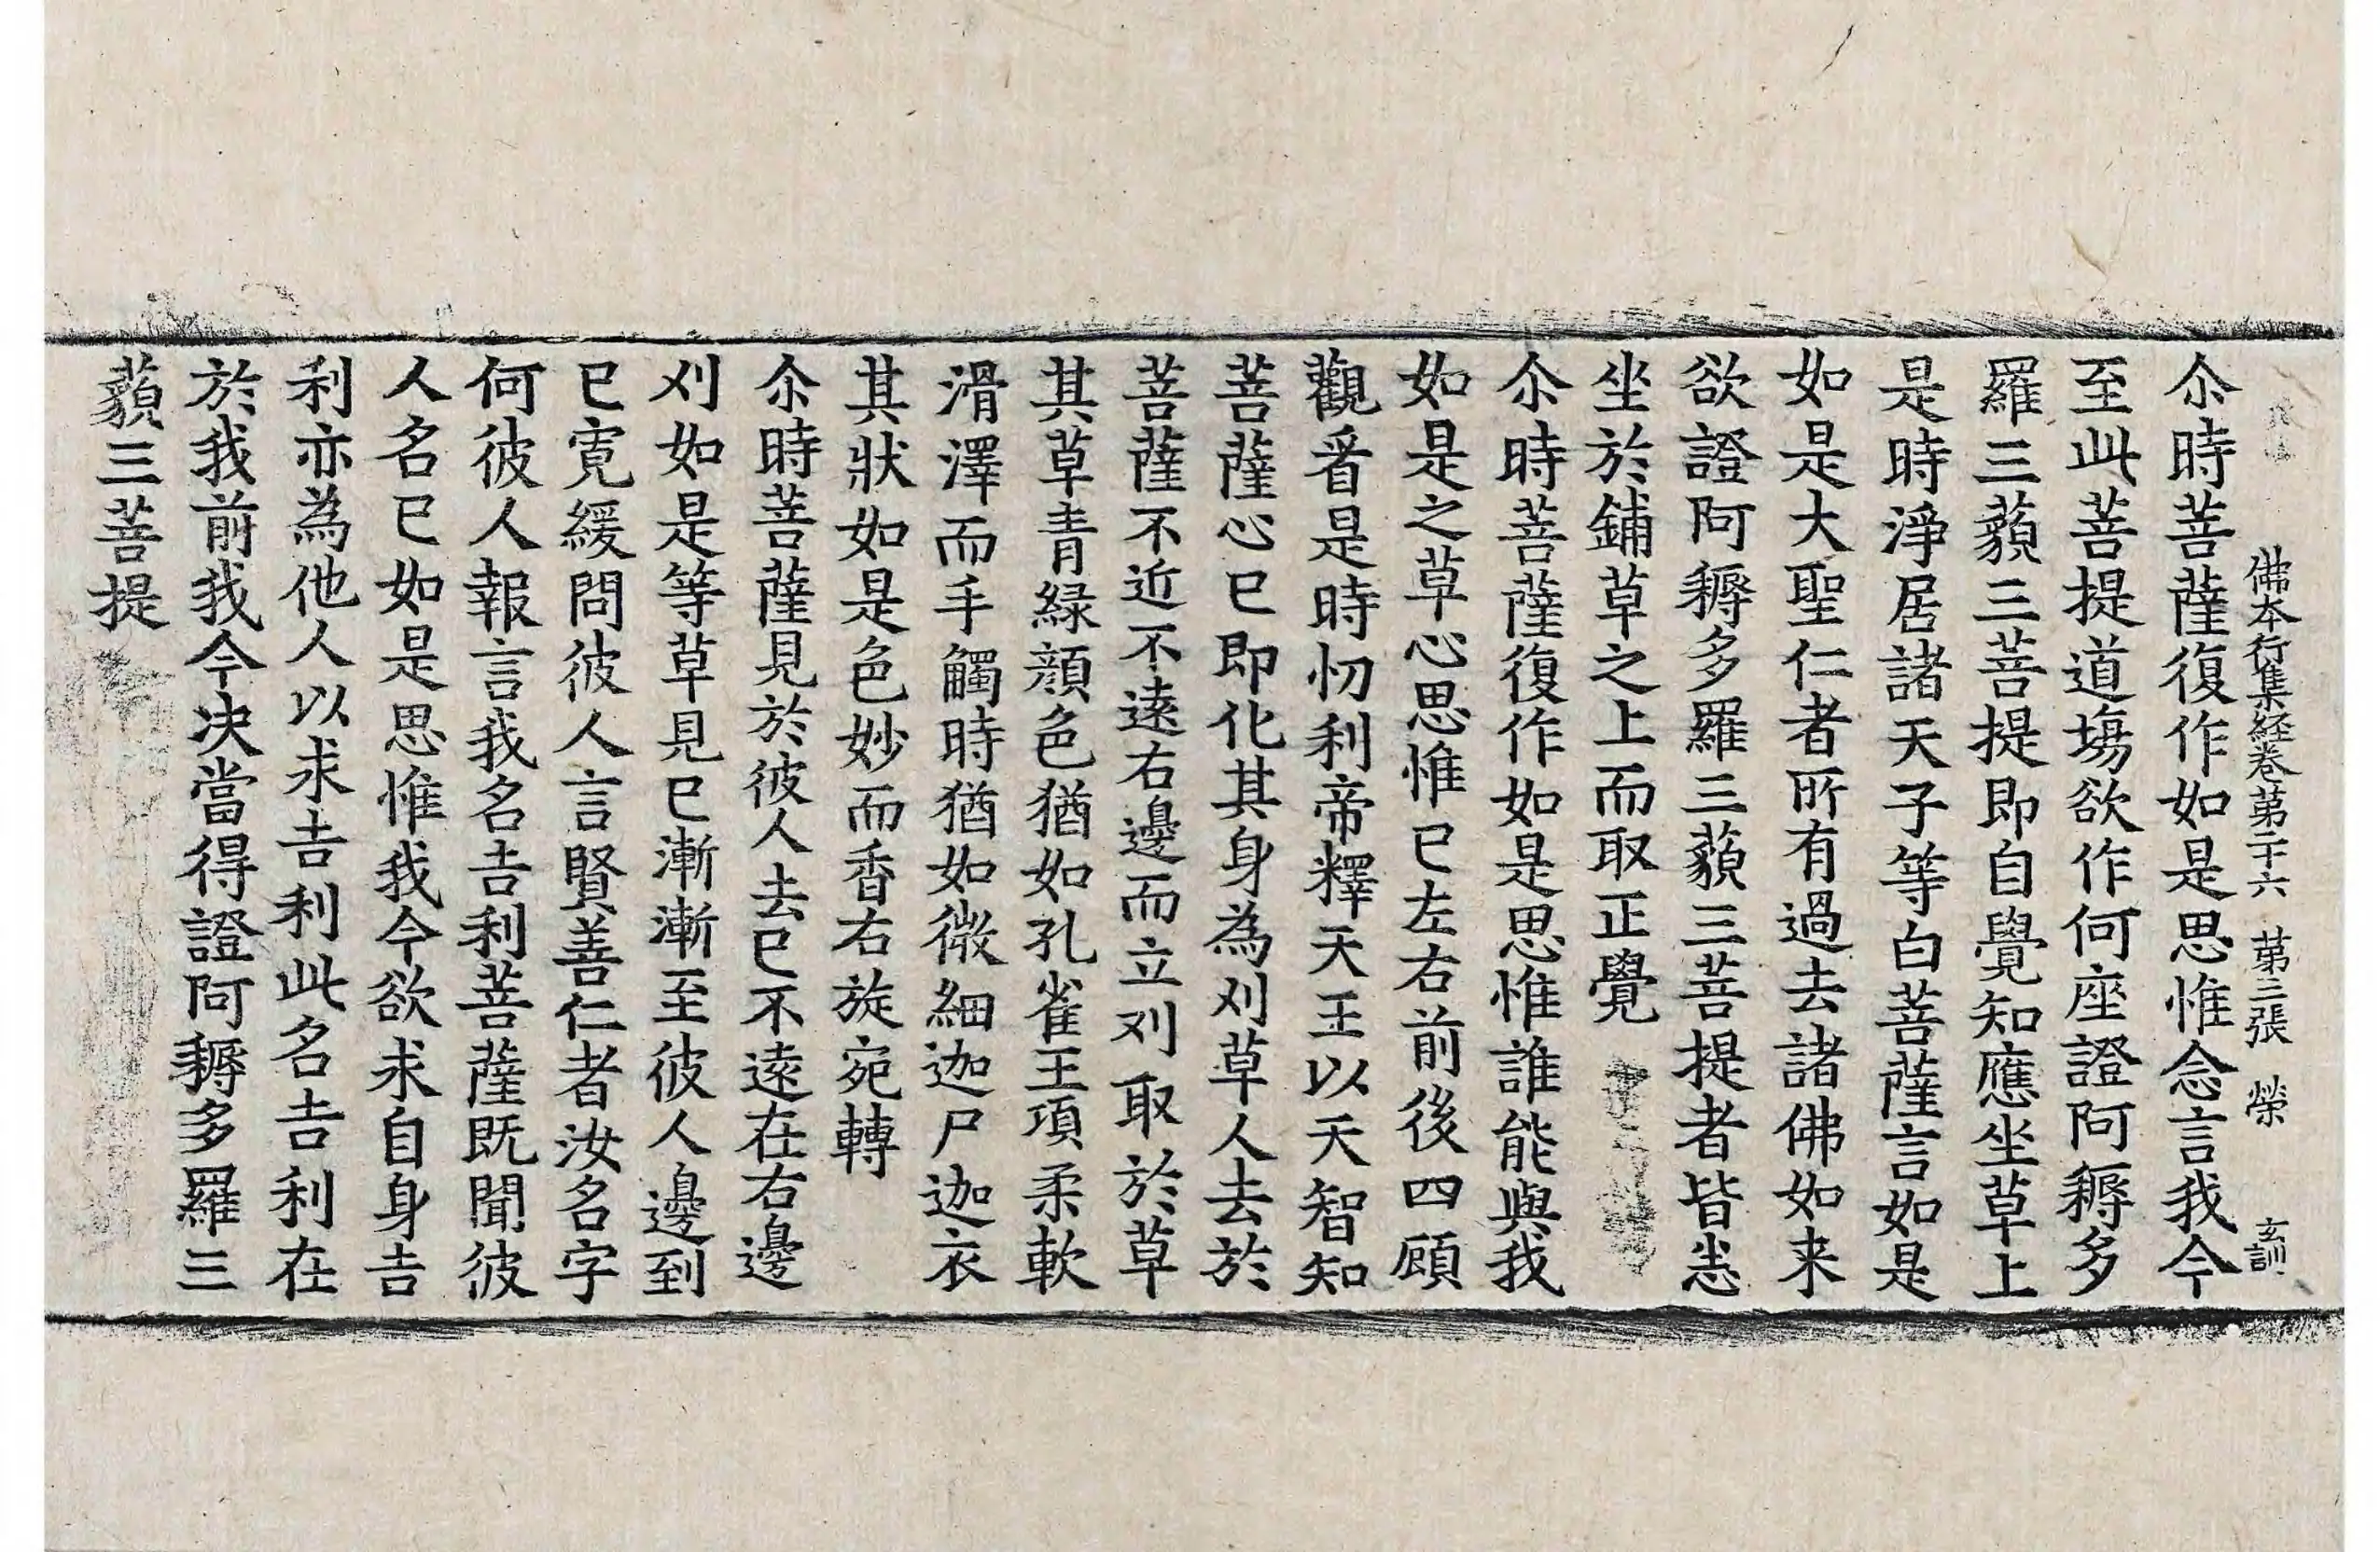 佛本行集経卷第二十六 第三張 榮 玄訓
尒時菩薩復作如是思惟念言我今
至此菩提道場欲作何座證阿耨多
羅三藐三菩提即自覺知應坐草上
是時淨居諸天子等白菩薩言如是
如是大聖仁者所有過去諸佛如来
欲證阿耨多羅三藐三菩提者皆悉
坐於鋪草之上而取正覺
尒時菩薩復作如是思惟誰能與我
如是之草心思惟已左右前後四顧
觀看是時忉利帝釋天王以天智知
菩薩心已即化其身為刈草人去於
菩薩不近不遠右邊而立刈取於草
其草青緑顔色猶如孔雀王項柔軟
滑澤而手觸時猶如微細迦尸迦衣
其狀如是色妙而香右旋宛轉
尒時菩薩見於彼人去已不遠在右邊
刈如是等草見已漸漸至彼人邊到
已寬緩問彼人言賢善仁者汝名字
何彼人報言我名吉利菩薩既聞彼
人名已如是思惟我今欲求自身吉
利亦為他人以求吉利此名吉利在
於我前我今决當得證阿耨多羅三
藐三菩提